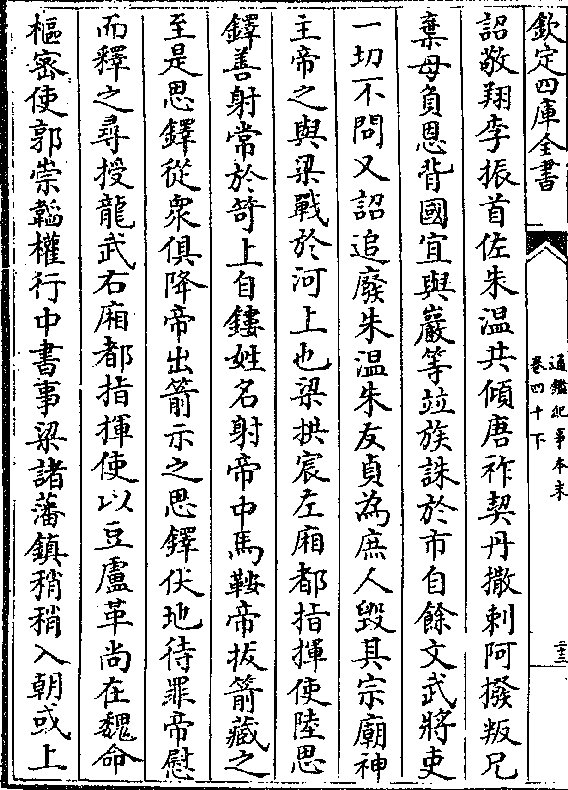 欽定四庫全書
通鑑紀事本末
卷四十下
二十三
詔敬翔李振首佐朱温共傾唐祚契丹撒剌阿撥叛兄
棄母負恩背國宜與巖等竝族誅於市自餘文武將吏
一切不問又詔追廢朱温朱友貞為庶人毀其宗廟神
主帝之與梁戰於河上也梁拱宸左廂都指揮使陸思
鐸善射常於笴上自鏤姓名射帝中馬鞍帝拔箭藏之
至是思鐸從衆俱降帝出箭示之思鐸伏地待罪帝慰
而釋之尋授龍武右廂都指揮使以豆盧革尚在魏命
樞密使郭崇韜權行中書事梁諸藩鎮稍稍入朝或上